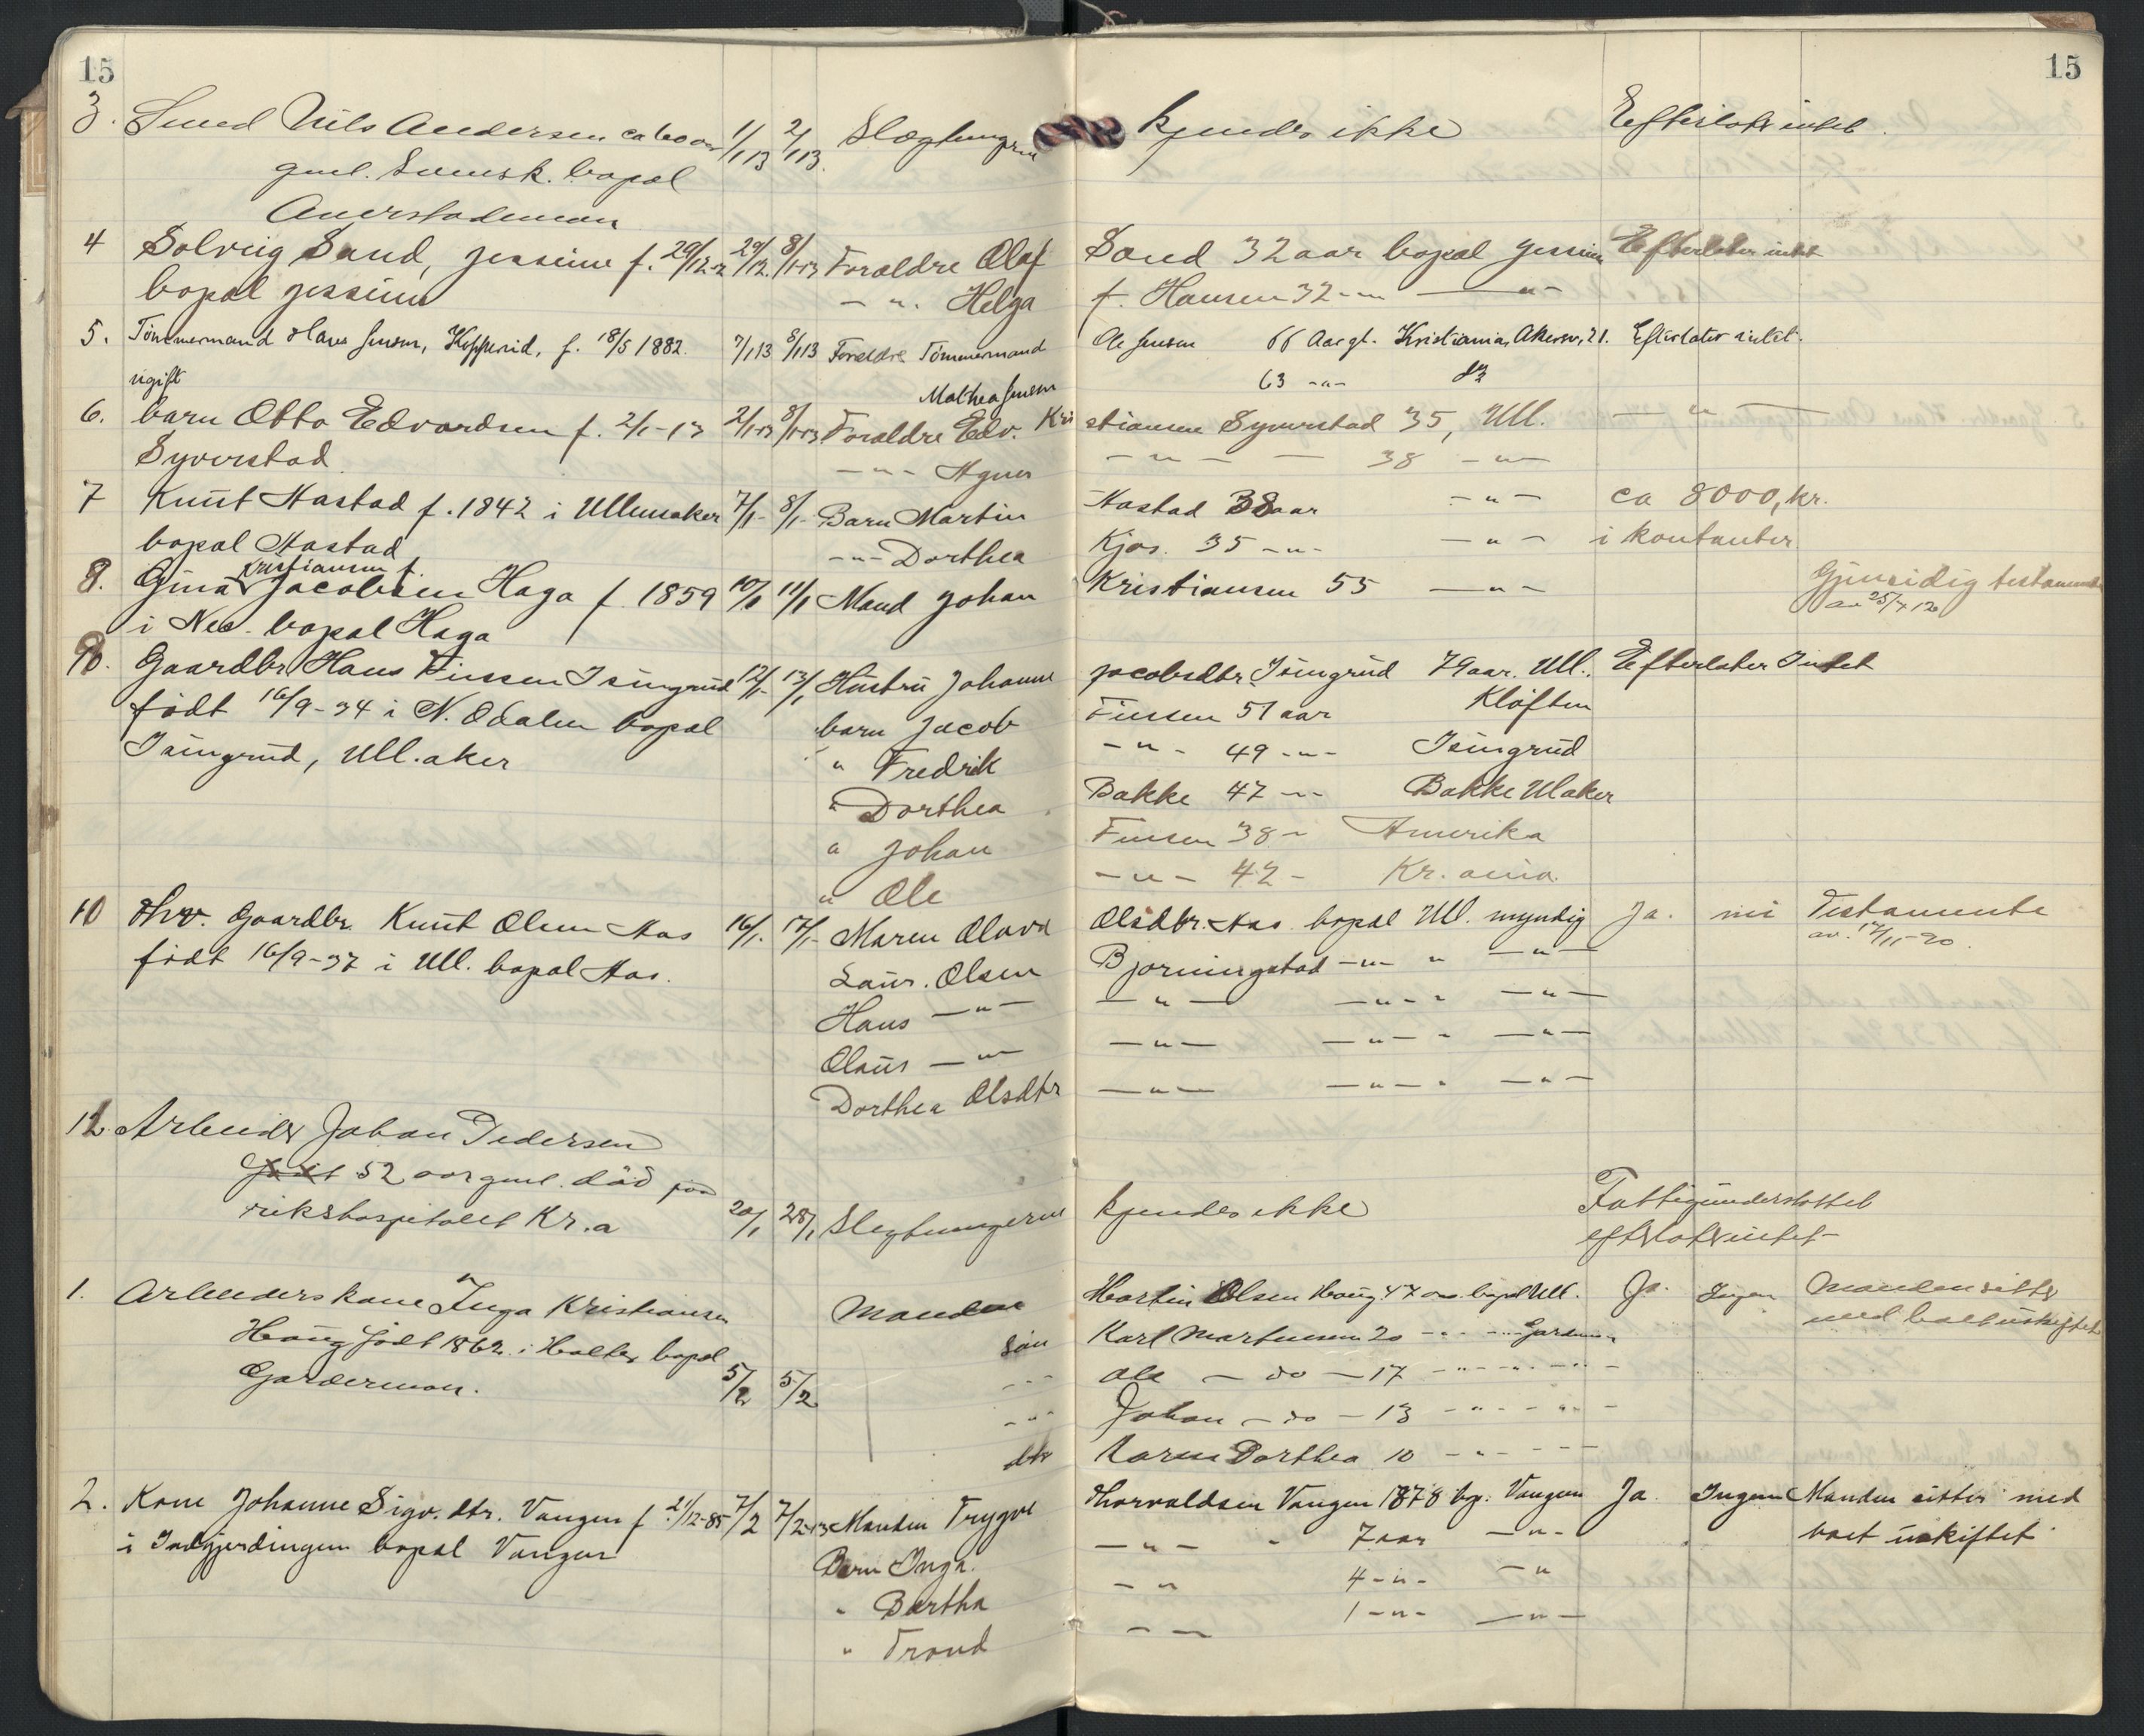 15
15
3. Smed Nils Andersen ca 60 aar 1/1 13 2/1 13. Slægtningene kjendes ikke Efterlot intet.
gml. Svensk. bopæl
4 Solveig Sand, Jessium f. 29/12-12 29/12. 8/1-13 Foraldre Olaf Sand 32 aar bopæl Jessium Efterlater intet
bopæl Jessium — " . Helga f. Hansen 32 — " — " —
5. Tömmermand Hans Jensen, Kopperud, f. 18/5 1882. 7/1 13 8/1 13 Foreldre Tömmermand Ole Jensen 66 Aar gl. Kristiania, Akersv. 21. Efterlater intet.
ugift Mathea Jensen 63 - " - do
6. barn Otto Edvardsen f. 2/1-13 2/1-13 8/1-13 Foraldre Edv. Kristiansen Syverstad 35, Ull. — " —
Syverstad. — " - Agnes — " — — 38 - " -
7 Knut Aastad f. 1842 i Ullensaker 7/1- 8/1- Barn Martin Aastad 38 aar - " - ca 8000, kr.
bopal Aastad — " - Dorthea Kjos. 35 - " - — " - i kontanter
Kristiansen f.
8. Gina Jacobsen Haga f. 1859 10/1 11/1 Mand Johan Kristiansen 55 — " - Gjensidig testamente
av 25/7 12
i Nes. bopal Haga
9. Gaardbr. Hans Finssen Isingrud 12/1- 13/1 Hustru Johanne Jacobsdtr. Isingrud 79 aar. Ull. Efterlater Intet
födt 16/9-34 i N. Odalen bopal barn Jacob Finssen 51 aar Klöften
Isingrud, Ull.aker " Fredrik - " - 49 - " - Isingrud
" Dorthea Bakke 47 - " - Bakke Ulaker
" Johan Finsen 38 - Amerika
" Ole - " - 42 - Kr.ania.
10 Fhv. Gaardbr. Knut Olsen Aas 16/1. 17/1- Maren Olava Olsdtr. Aas bopal Ull. myndig Ja. nei Testamente
av. 17/11-20.
födt 16/9-37 i Ull. bopal Aas. Laur. Olsen Bjorningstad - " - " — " —
Hans — " — — " — — " - " — " —
Olaus — " — — " — — " - " — " —
Dorthea Olsdtr — " — — " - " — " —
12. Arbeider Johan Pedersen
Födt 52 aar gml. död paa
rikshospitalet Kr.a 20/1 28/1 Slegtningerne kjendes ikke Fattigunderstöttet
efterlot intet
1. Arbeiderskone Inga Kristiansen Manden Martin Olsen Haug 47 aar bopal Ull. Ja. Ingen Manden sitter
med boet uskiftet
Haug födt 1862 i Holter bopal sön Karl Martinsen 20 - " - " -
Gardermoen. 5/2 5/2 - " - Ole — do — 17 - " - " -
- " - Johan — do — 13 - " - " -
dtr Karen Dorthea 10 - " - " -
2. Kone Johanne Sigv. dtr. Vangen f. 21/12-85 7/2 7/2-13 Manden Trygve Thorvaldsen Vangen 1878 bp. Vangen Ja. Ingen Manden sitter med
i Indgjerdingen bopal Vangen Barn Inga. — " — " 7 aar — " - boet uskiftet
" Bertha - " 4 - " - — "
" Trond - " 1 - " - — " —